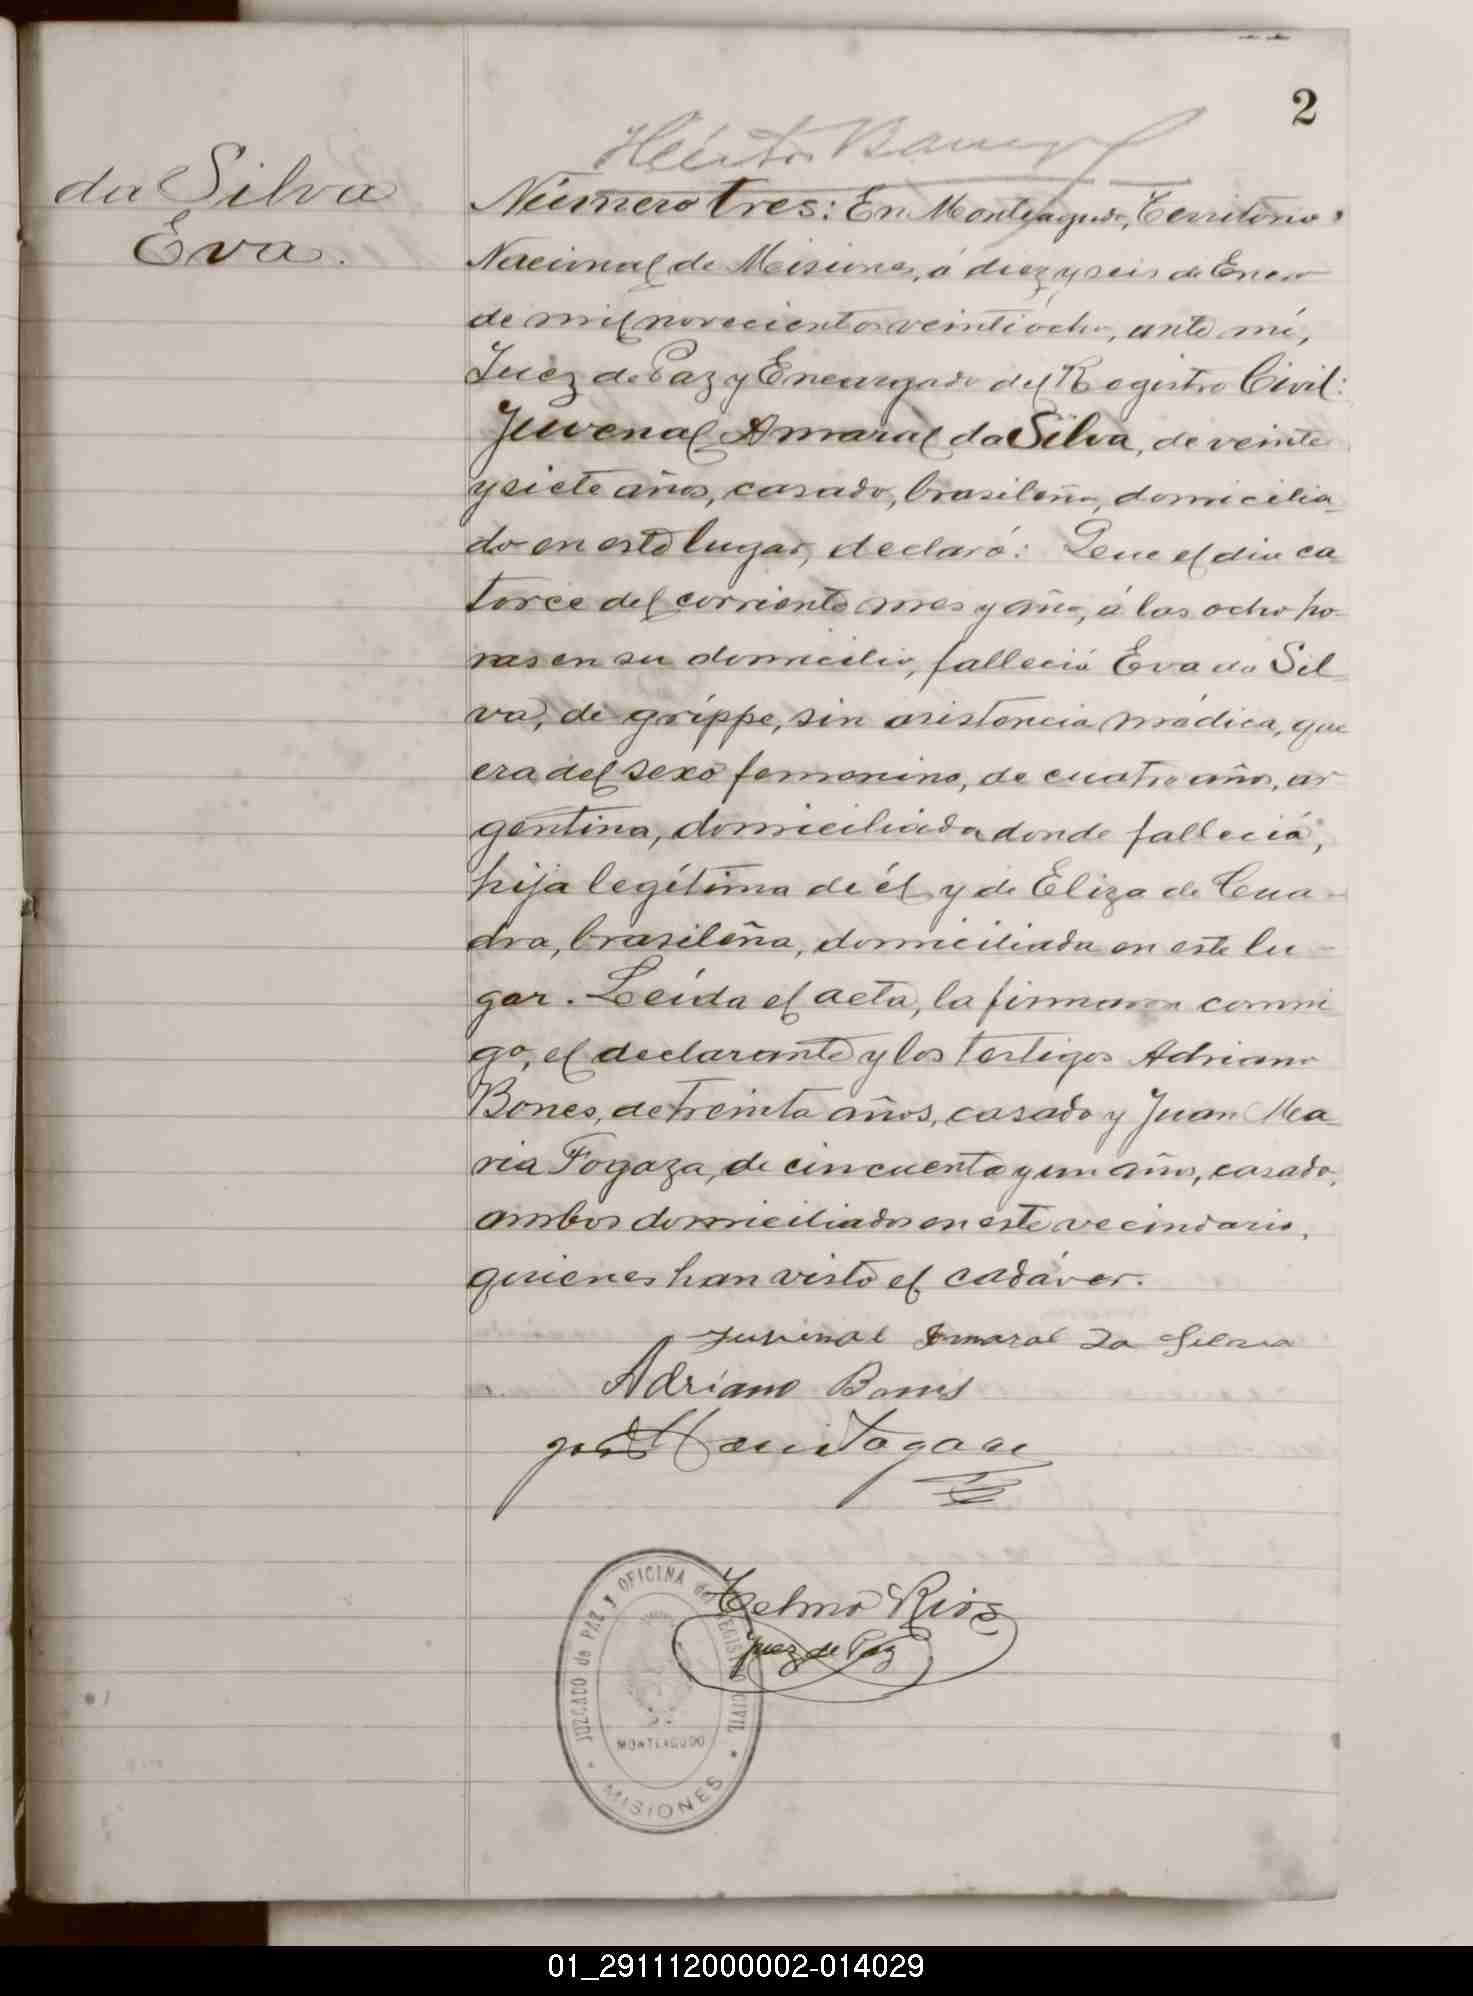 2
Héctor
da Silva
Eva.
Número tres: En Monteagudo, Territorio
Nacional de Misiones, á diez y seis de Enero
de mil novecientos veintiocho, ante mí,
Juez de Paz y Encargado del Registro Civil:
Juvenal Amaral da Silva, de veinte
y siete años, casado, brasileño, domicilia-
do en este lugar, declaró: Que el día ca
torce del corriente mes y año, á las ocho ho-
ras en su domicilio, falleció Eva da Sil
va, de grippe, sin asistencia médica, que
era del sexo femenino, de cuatro años, ar
gentina, domiciliada donde falleció,
hija legítima de él y de Eliza de Cua-
dra, brasileña, domiciliada en este lu-
gar. Leída el acta, la firmaron conmi
go, el declarante y los testigos Adriano
Bones, de treinta años, casado y Juan Ma
ria Fogaza, de cincuenta y un años, casado,
ambos domiciliados en este vecindario,
quienes han visto el cadáver.
Juvinal Amaral da Silva
Adriano Bones
Telmo Rios
Juez de Paz
JUZGADO de PAZ y OFICINA del REGISTRO CIVIL
MONTEAGUDO
MISIONES
01_291112000002-014029